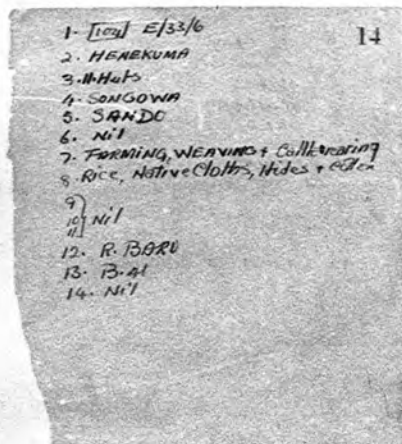 14
1. [104] E/33/6
2. HENEKUMA
3. 11 Huts
4. SONGOWA
5. SANDO
6. Nil
7. FARMING, WEAVING + Cattle rearing
8. Rice, Native Cloths, Hides +
9
10 } Nil
11
12. R. BARU
13. B.41
14. Nil